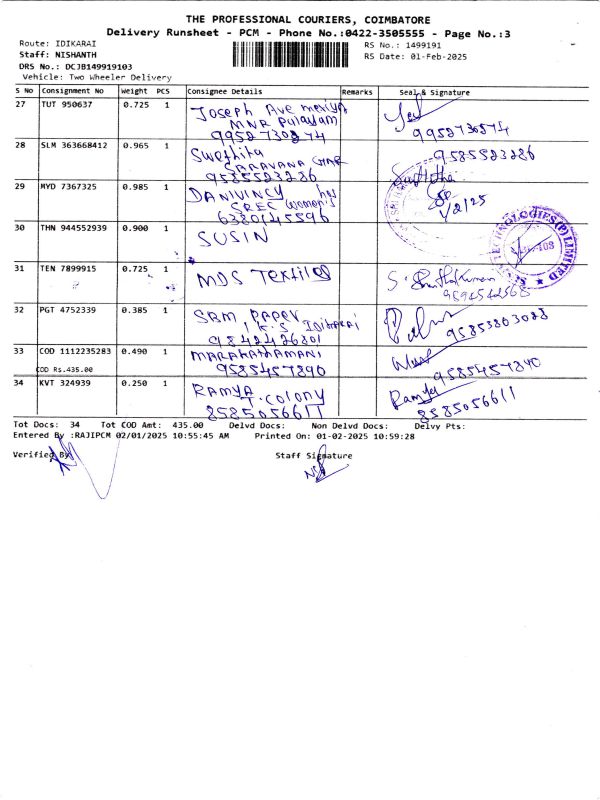 THE PROFESSIONAL COURIERS, COIMBATORE
Delivery Runsheet - PCM - Phone No.:0422-3505555 - Page No.:3
Route: IDIKARAI RS No.: 1499191
Staff: NISHANTH RS Date: 01-Feb-2025
DRS No.: DCJB149919103
Vehicle: Two Wheeler Delivery
S No Consignment No Weight PCS Consignee Details Remarks Seal & Signature
27 TUT 950637 0.725 1 Joseph Ave
MNR Palayam
9952730574
28 SLM 363668412 0.965 1 Swethita 9585523286
SARAVANA
9585523286
29 MYD 7367325 0.985 1 DANIVINCY
SREC women's 1/2/25
6380145596
30 THN 944552939 0.900 1 SUSIN
TECHNOLOGIES(P)LIMITED
31 TEN 7899915 0.725 1 MDS Textiles
9594542568
32 PGT 4752339 0.385 1 SBM PAPER 9585303088
I.K.S Idikarai
9842426801
33 COD 1112235283 0.490 1 MARAHATHAMANI
COD Rs.435.00 9585457890 9585457890
34 KVT 324939 0.250 1 RAMYA Ramya
T.COLONY
8585056611 8585056611
Tot Docs: 34 Tot COD Amt: 435.00 Delvd Docs: Non Delvd Docs: Delvy Pts:
Entered By :RAJIPCM 02/01/2025 10:55:45 AM Printed On: 01-02-2025 10:59:28
Verified By Staff Signature